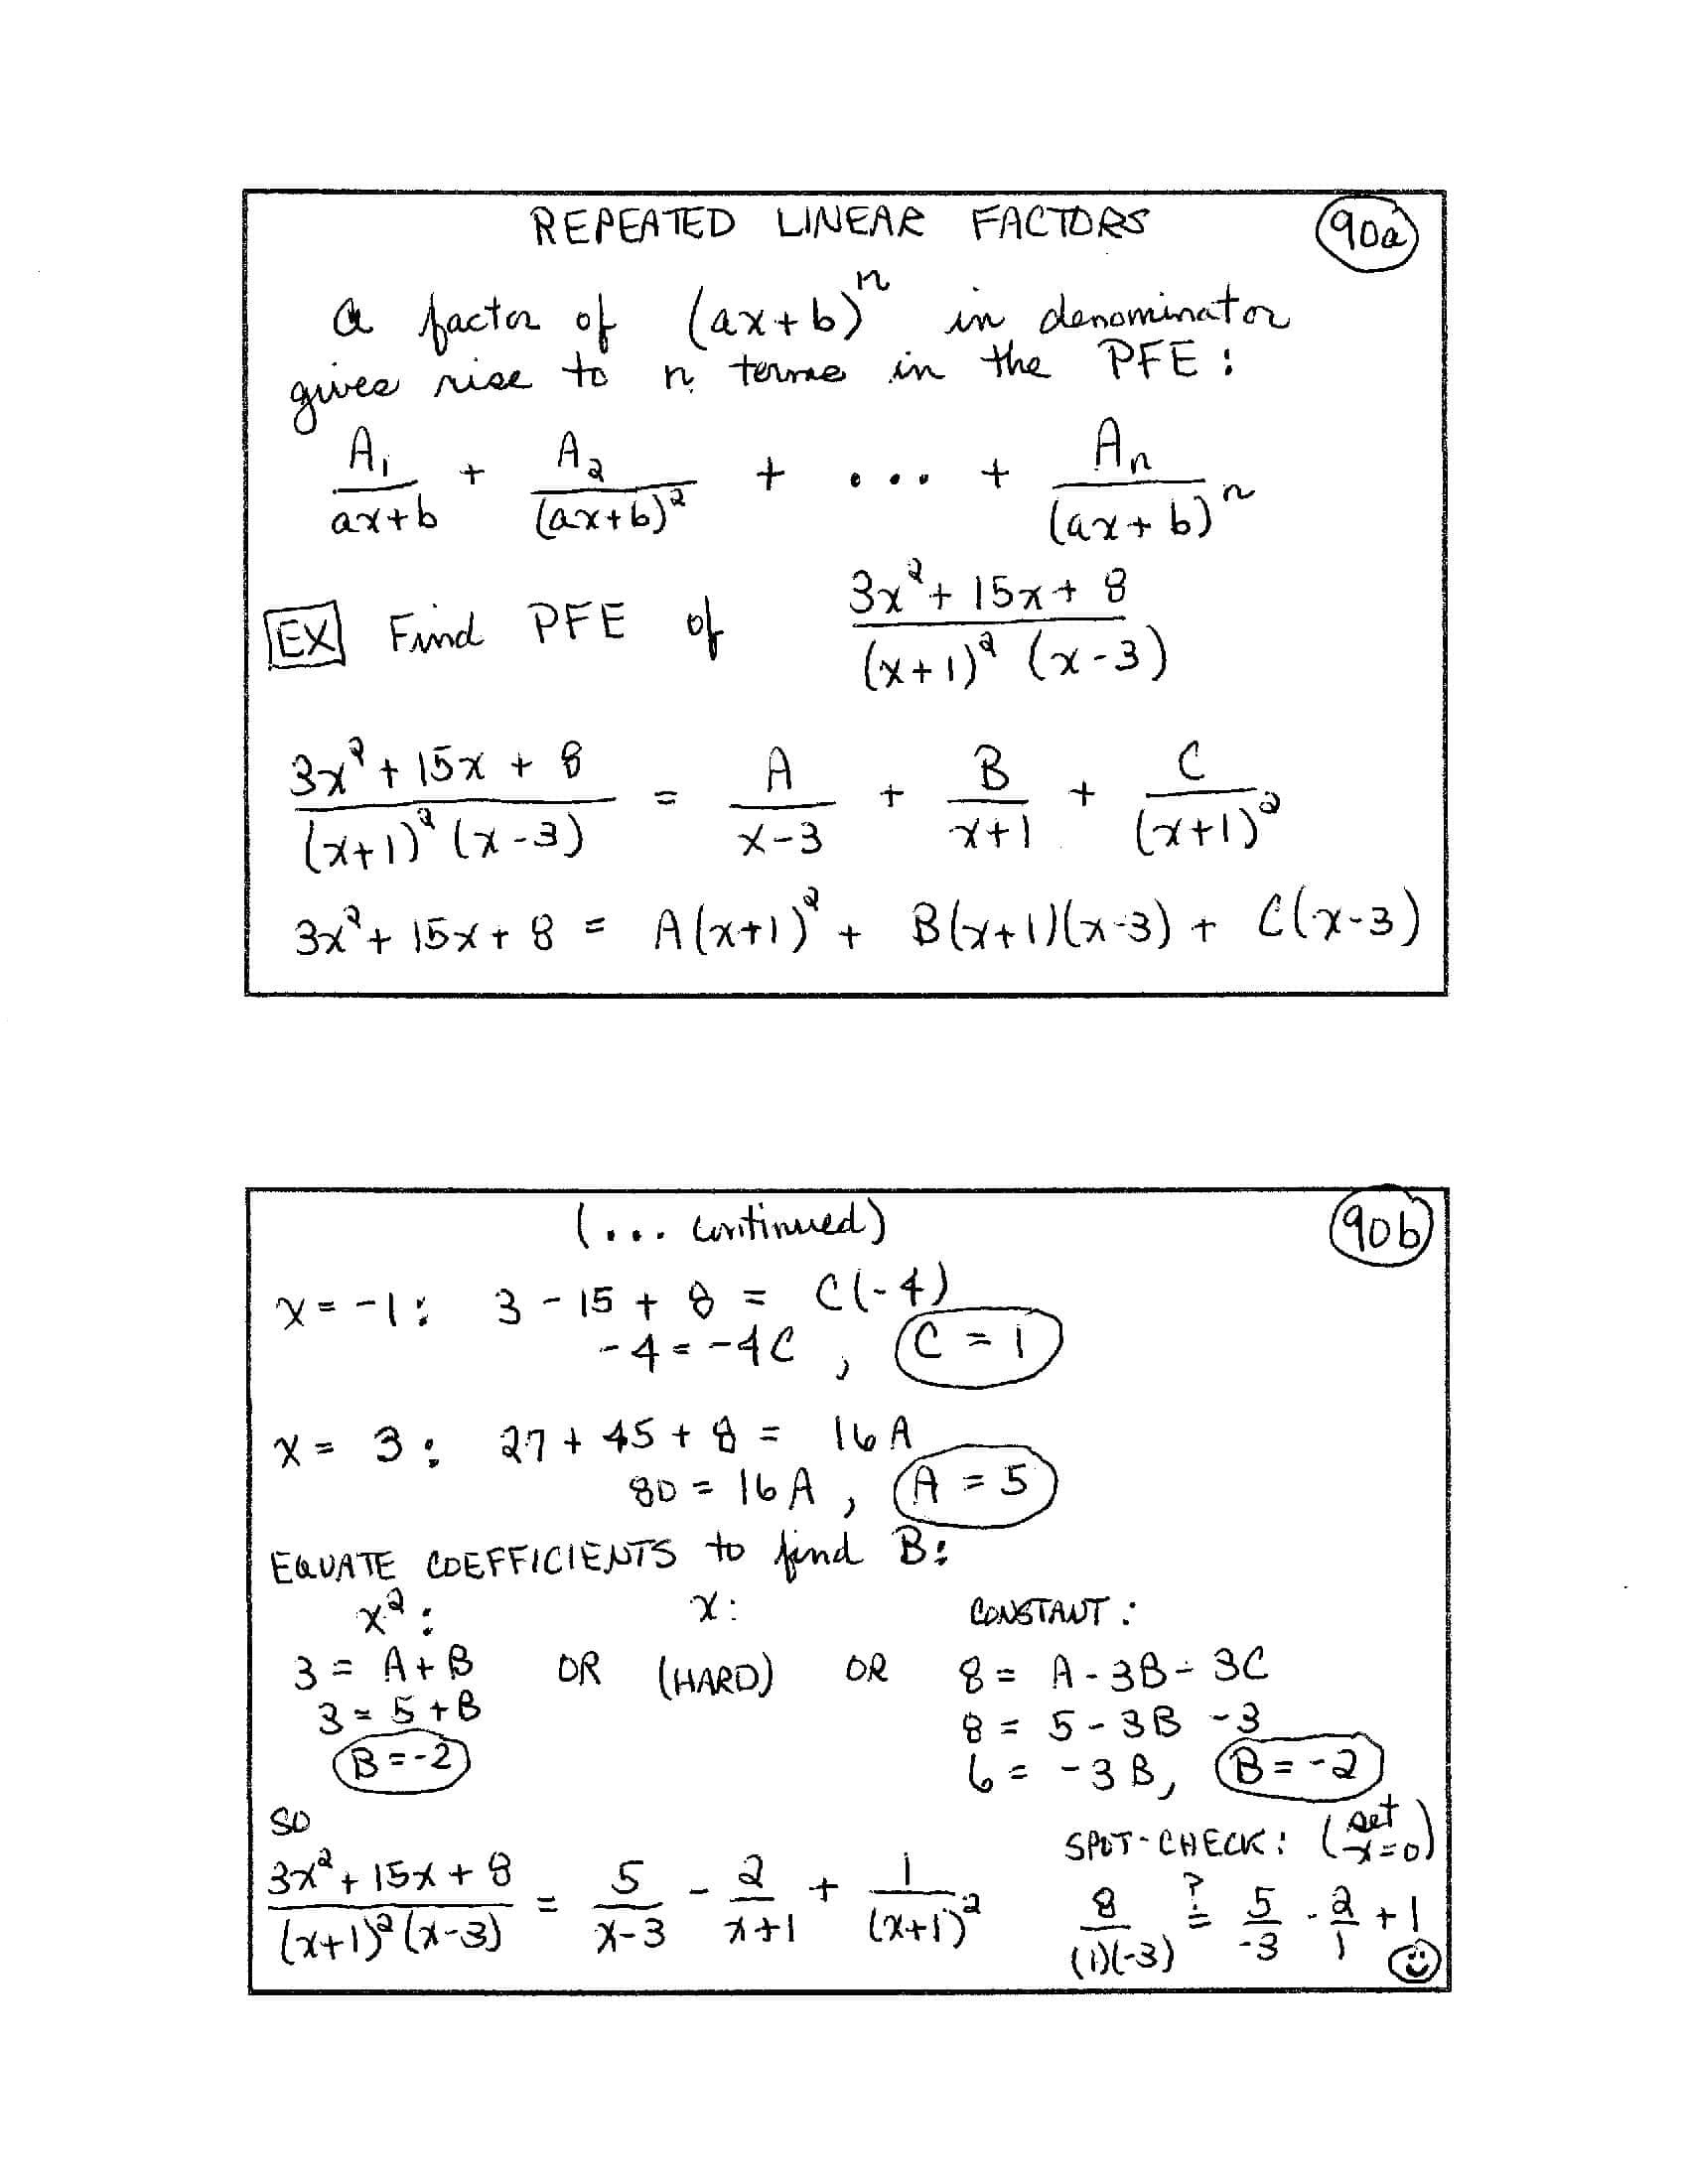 REPEATED LINEAR FACTORS 90a
A factor of (ax+b)^n in denominator
gives rise to n terms in the PFE:
A₁/(ax+b) + A₂/(ax+b)² + ... + Aₙ/(ax+b)^n
EX Find PFE of (3x²+15x+8)/((x+1)²(x-3))
(3x²+15x+8)/((x+1)²(x-3)) = A/(x-3) + B/(x+1) + C/(x+1)²
3x²+15x+8 = A(x+1)² + B(x+1)(x-3) + C(x-3)
(... continued) 90b
x = -1: 3 - 15 + 8 = C(-4)
-4 = -4C, C = 1
x = 3: 27 + 45 + 8 = 16A
80 = 16A, A = 5
EQUATE COEFFICIENTS to find B:
x²: x: CONSTANT:
3 = A+B OR (HARD) OR 8 = A - 3B - 3C
3 = 5+B 8 = 5 - 3B - 3
B = -2 6 = -3B, B = -2
SO SPOT-CHECK: (set x=0)
(3x²+15x+8)/((x+1)²(x-3)) = 5/(x-3) - 2/(x+1) + 1/(x+1)² 8/((1)(-3)) ?= 5/-3 - 2/1 + 1